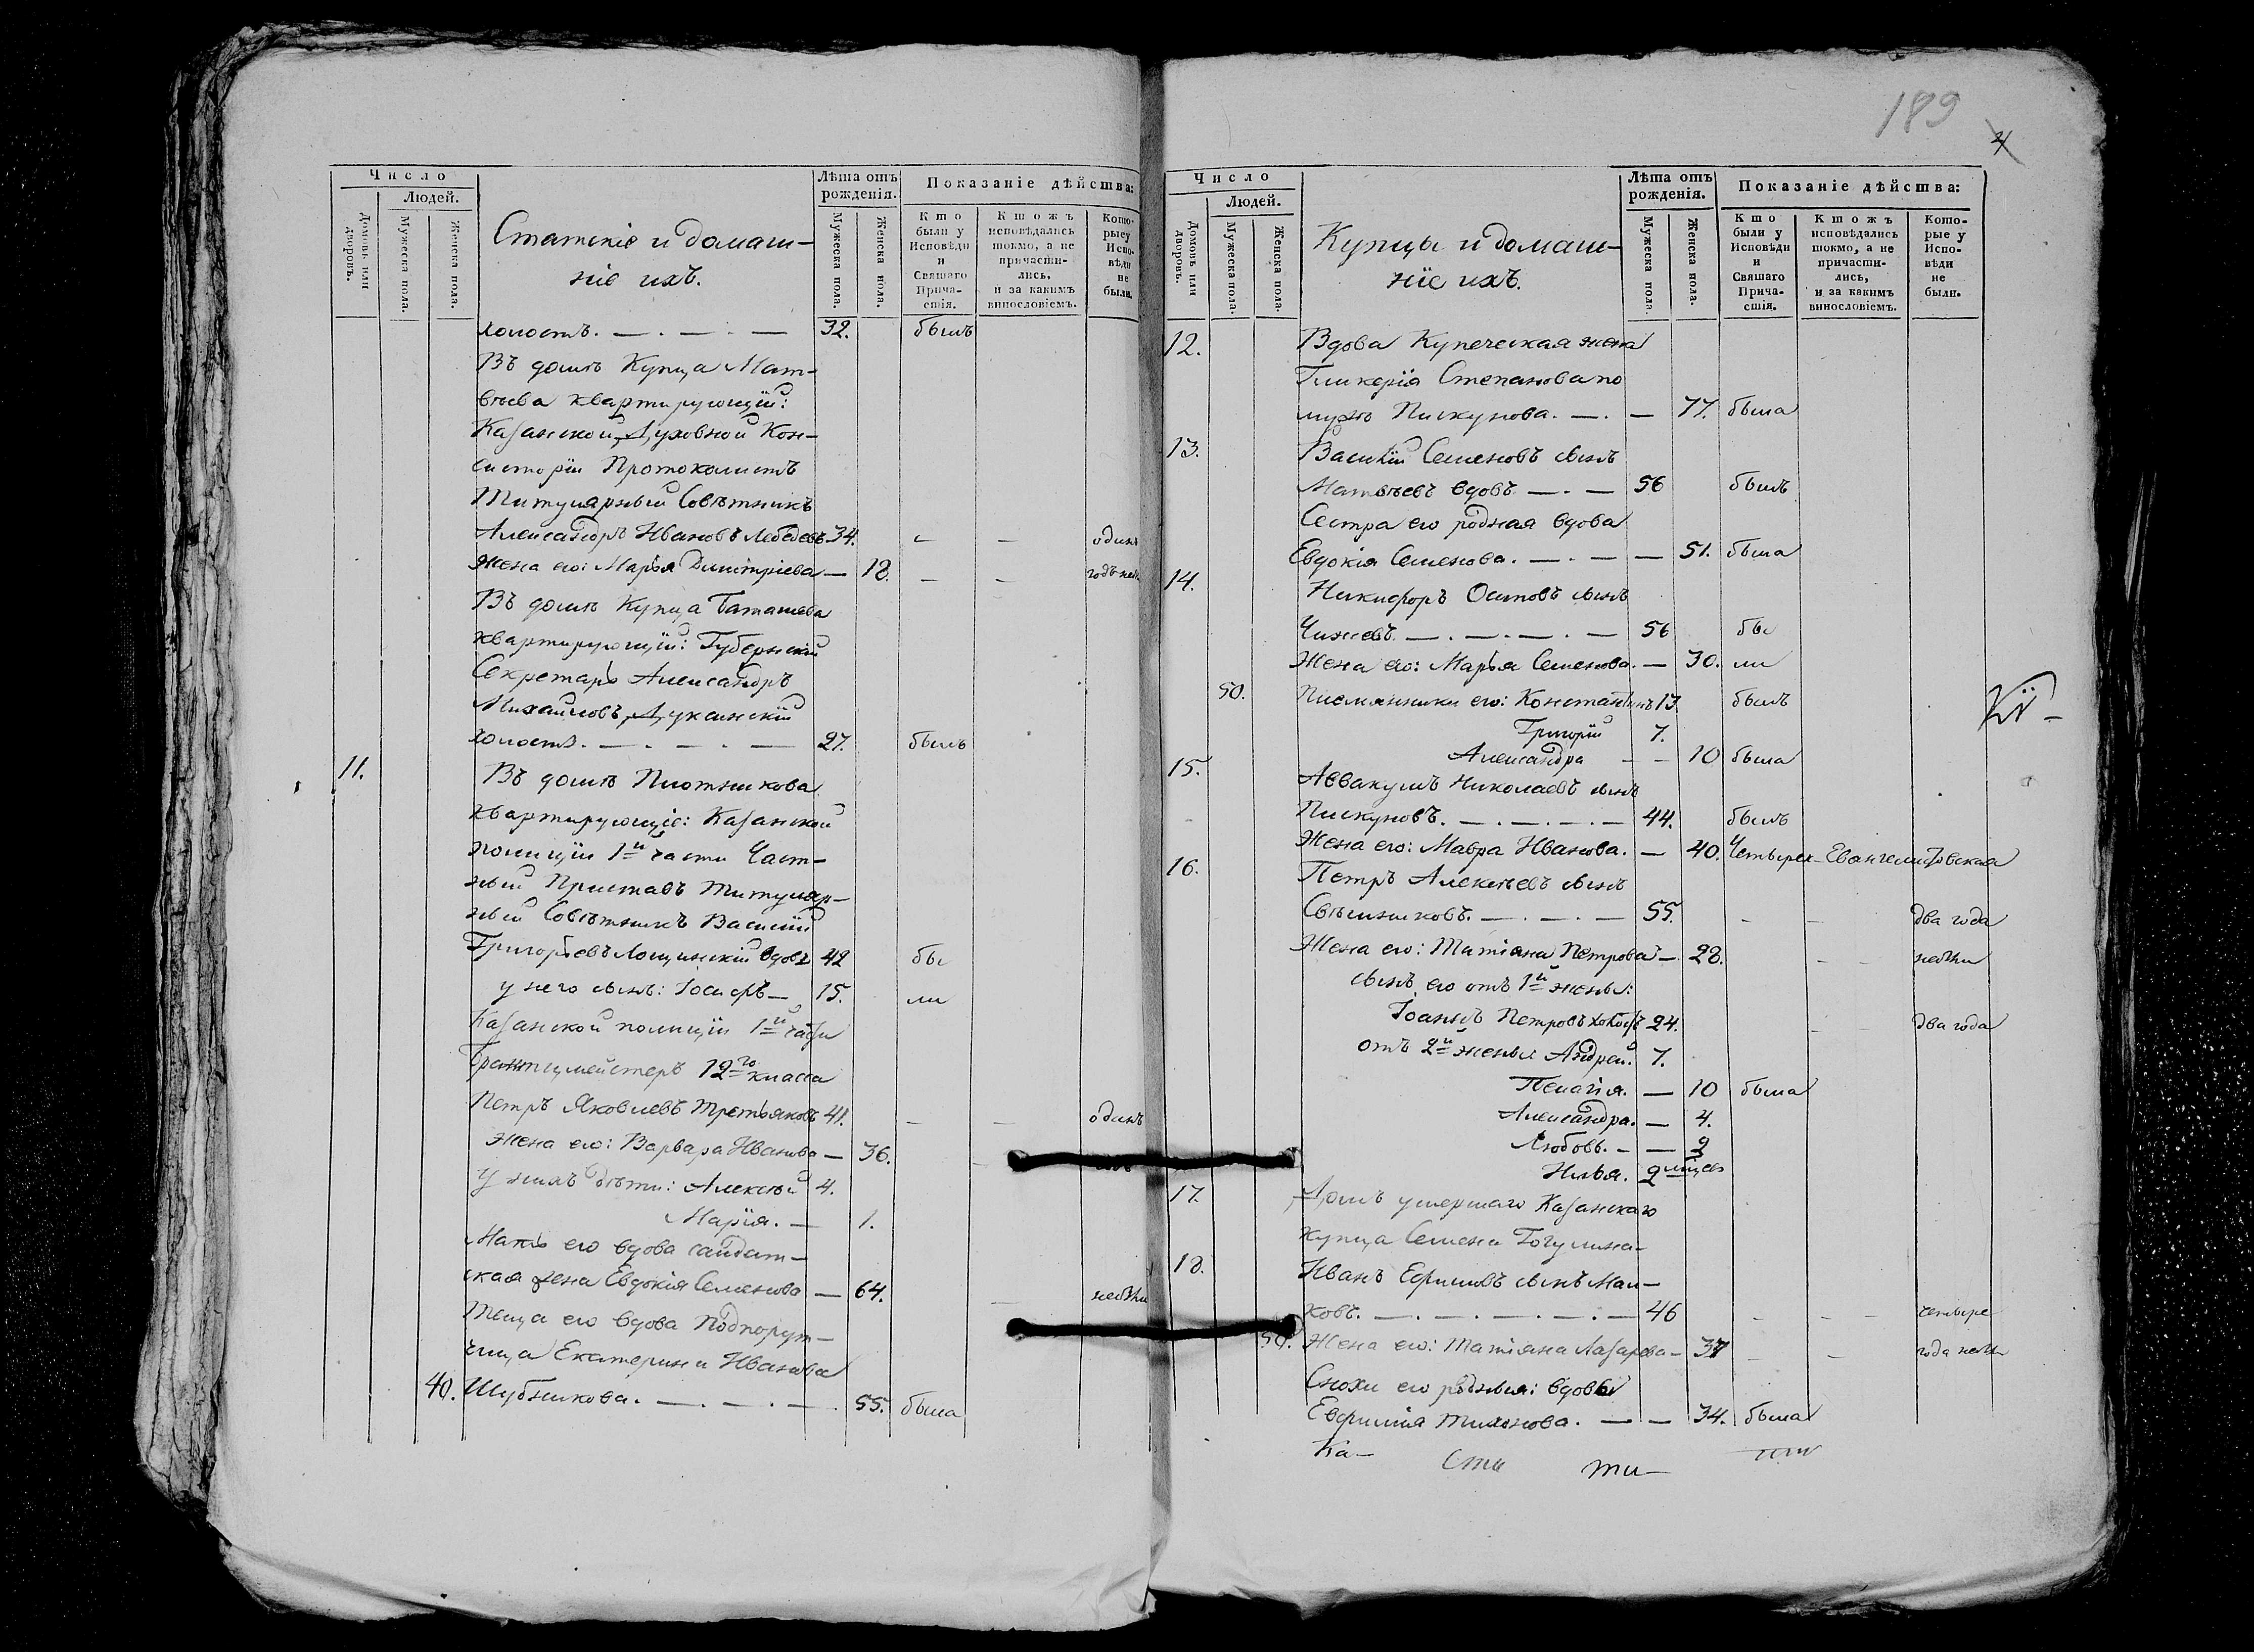 Число
Людей.
Домовъ или дворовъ.
Мужеска пола.
Женска пола.
Статскіе и домаш-
ніе ихъ.
Лѣта отъ рожденія.
Мужеска пола.
Женска пола.
Показаніе дѣйства:
Кто были у Исповѣди и Святаго Прича-стія.
Ктожъ исповѣдались токмо, а не причасти-лись, и за какимъ винословіемъ.
Кото-рые у Испо-вѣди не были.
холостъ. — . — . — 32. былъ
Въ домѣ Купца Мат-
вѣева квартирующій:
Казанской Духовной Кон-
систоріи Протоколистъ
Титулярный Совѣтникъ
Александръ Ивановъ Лебедевъ 34. — — одинъ
Жена его: Марья Димитріева — 18. — — годъ небы
Въ домѣ Купца Баташева
квартирующій: Губернскій
Секретарь Александръ
Михайловъ Дукчинскій
холостъ. — . — . — 27. былъ
11. Въ домѣ Плотникова
квартирующіе: Казанской
полиціи 1й части Част-
ный Приставъ Титуляр-
ный Совѣтникъ Василій
Григорьевъ Лощинскій вдовъ 42 бы
у него сынъ: Іосифъ — 15. ли
Казанской полиціи 1й части
Брантмейстеръ 12го класса
Петръ Яковлевъ Третьяковъ 41. — — одинъ
Жена его: Варвара Иванова — 36. —
У нихъ дѣти: Алексѣй 4.
Марія. — 1.
Мать его вдова салдат-
ская жена Евдокія Семенова — 64. — небыли
Теща его вдова Подпорут-
чица Екатерина Иванова
40. Шубникова. — . — . — . 55. была
189
4
Число
Людей.
Домовъ или дворовъ.
Мужеска пола.
Женска пола.
Купцы и домаш-
ніе ихъ.
Лѣта отъ рожденія.
Мужеска пола.
Женска пола.
Показаніе дѣйства:
Кто были у Исповѣди и Святаго Прича-стія.
Ктожъ исповѣдались токмо, а не причасти-лись, и за какимъ винословіемъ.
Кото-рые у Испо-вѣди не были.
12. Вдова Купеческая жена
Гликерія Степанова по
мужѣ Пискунова. — . — 77. была
13. Василій Семеновъ сынъ
Матвѣевъ вдовъ — . — 56 былъ
Сестра его родная вдова
Евдокія Семенова. — . — — 51. была
14. Никифоръ Осиповъ сынъ
Чижевъ. — . — . — . — 56 бы
Жена его: Марья Семенова. — 30. ли
50. Племянники его: Константинъ 13. былъ
Григорій 7.
Александра — — 10 была
15. Аввакумъ Николаевъ сынъ
Пискуновъ. — . — . — . — 44. былъ
Жена его: Мавра Иванова. — 40. Четырех-Евангелистовская
16. Петръ Алексѣевъ сынъ
Свѣшниковъ. — . — . — 55. — — два года
Жена его: Татіана Петрова — 28. — — небыли
сынъ его отъ 1й жены:
Іоаннъ Петровъ холостъ 24. — — два года
отъ 2й жены Андрей. 7.
Пелагія. — 10 была
Александра. — 4.
Любовь. — — 2
Илья. 2 мѣсяц
17. Домъ умершаго Казанскаго
купца Семена Гогулина —
18. Иванъ Ефимовъ сынъ Мал-
ковъ. — . — . — . — . — 46 — — — четыре
50. Жена его: Татіана Лазарева — 37 — — года небыли
Снохи его родныя: вдовы
Евфимія Тихонова. — — 34. была
Ка- сти ти-